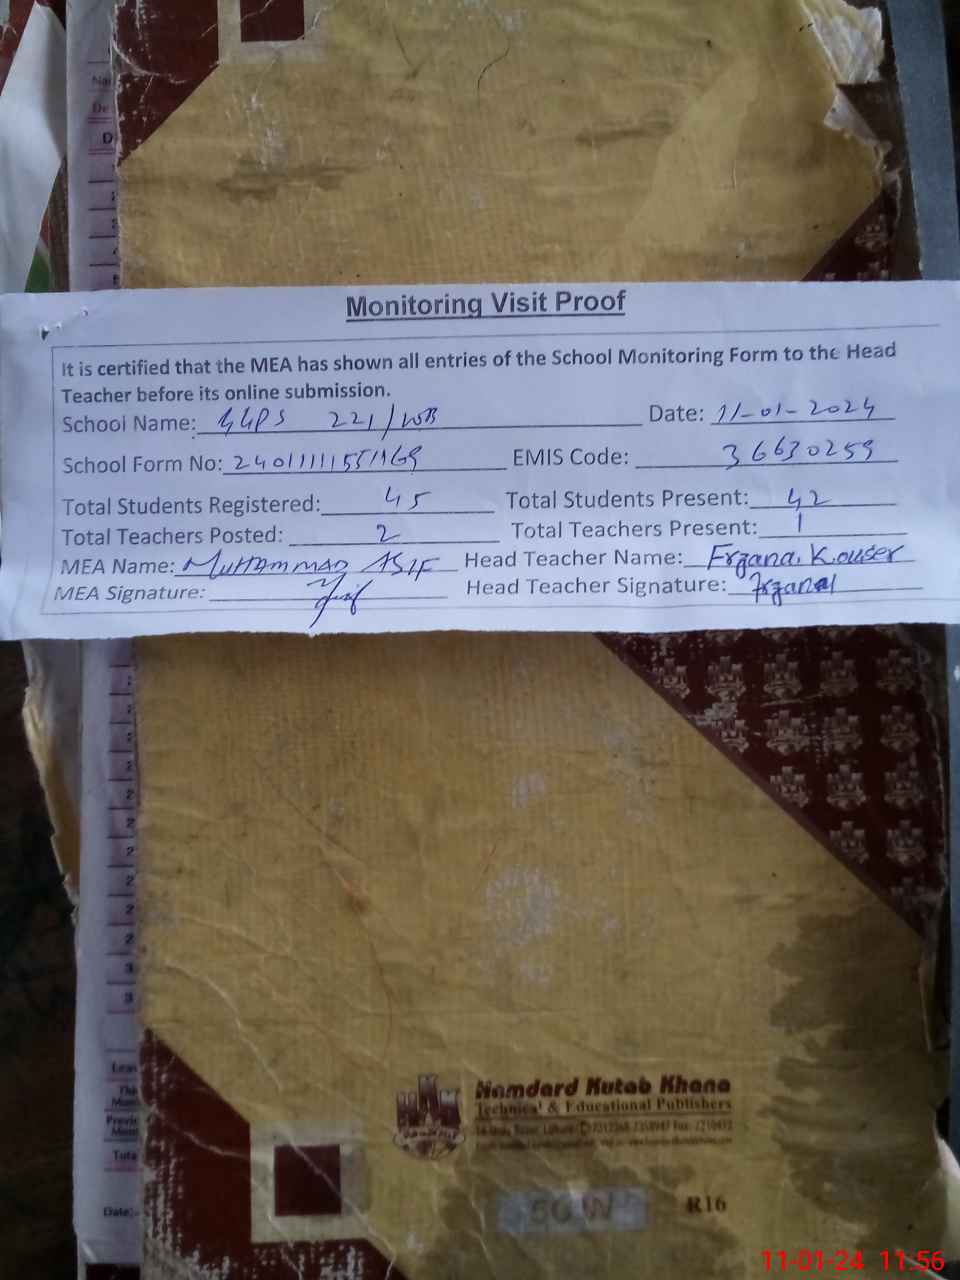 Monitoring Visit Proof
It is certified that the MEA has shown all entries of the School Monitoring Form to the Head
Teacher before its online submission.
School Name: GGPS 221/WB Date: 11-01-2024
School Form No: EMIS Code: 36630259
Total Students Registered: 45 Total Students Present: 42
Total Teachers Posted: 2 Total Teachers Present: 1
MEA Name: MUHAMMAD ASIF Head Teacher Name: Frzana Kouser
MEA Signature: Asif Head Teacher Signature: Frzana
Hamdard Kutab Khana
Technical & Educational Publishers
50 W R16
11-01-24 11:56